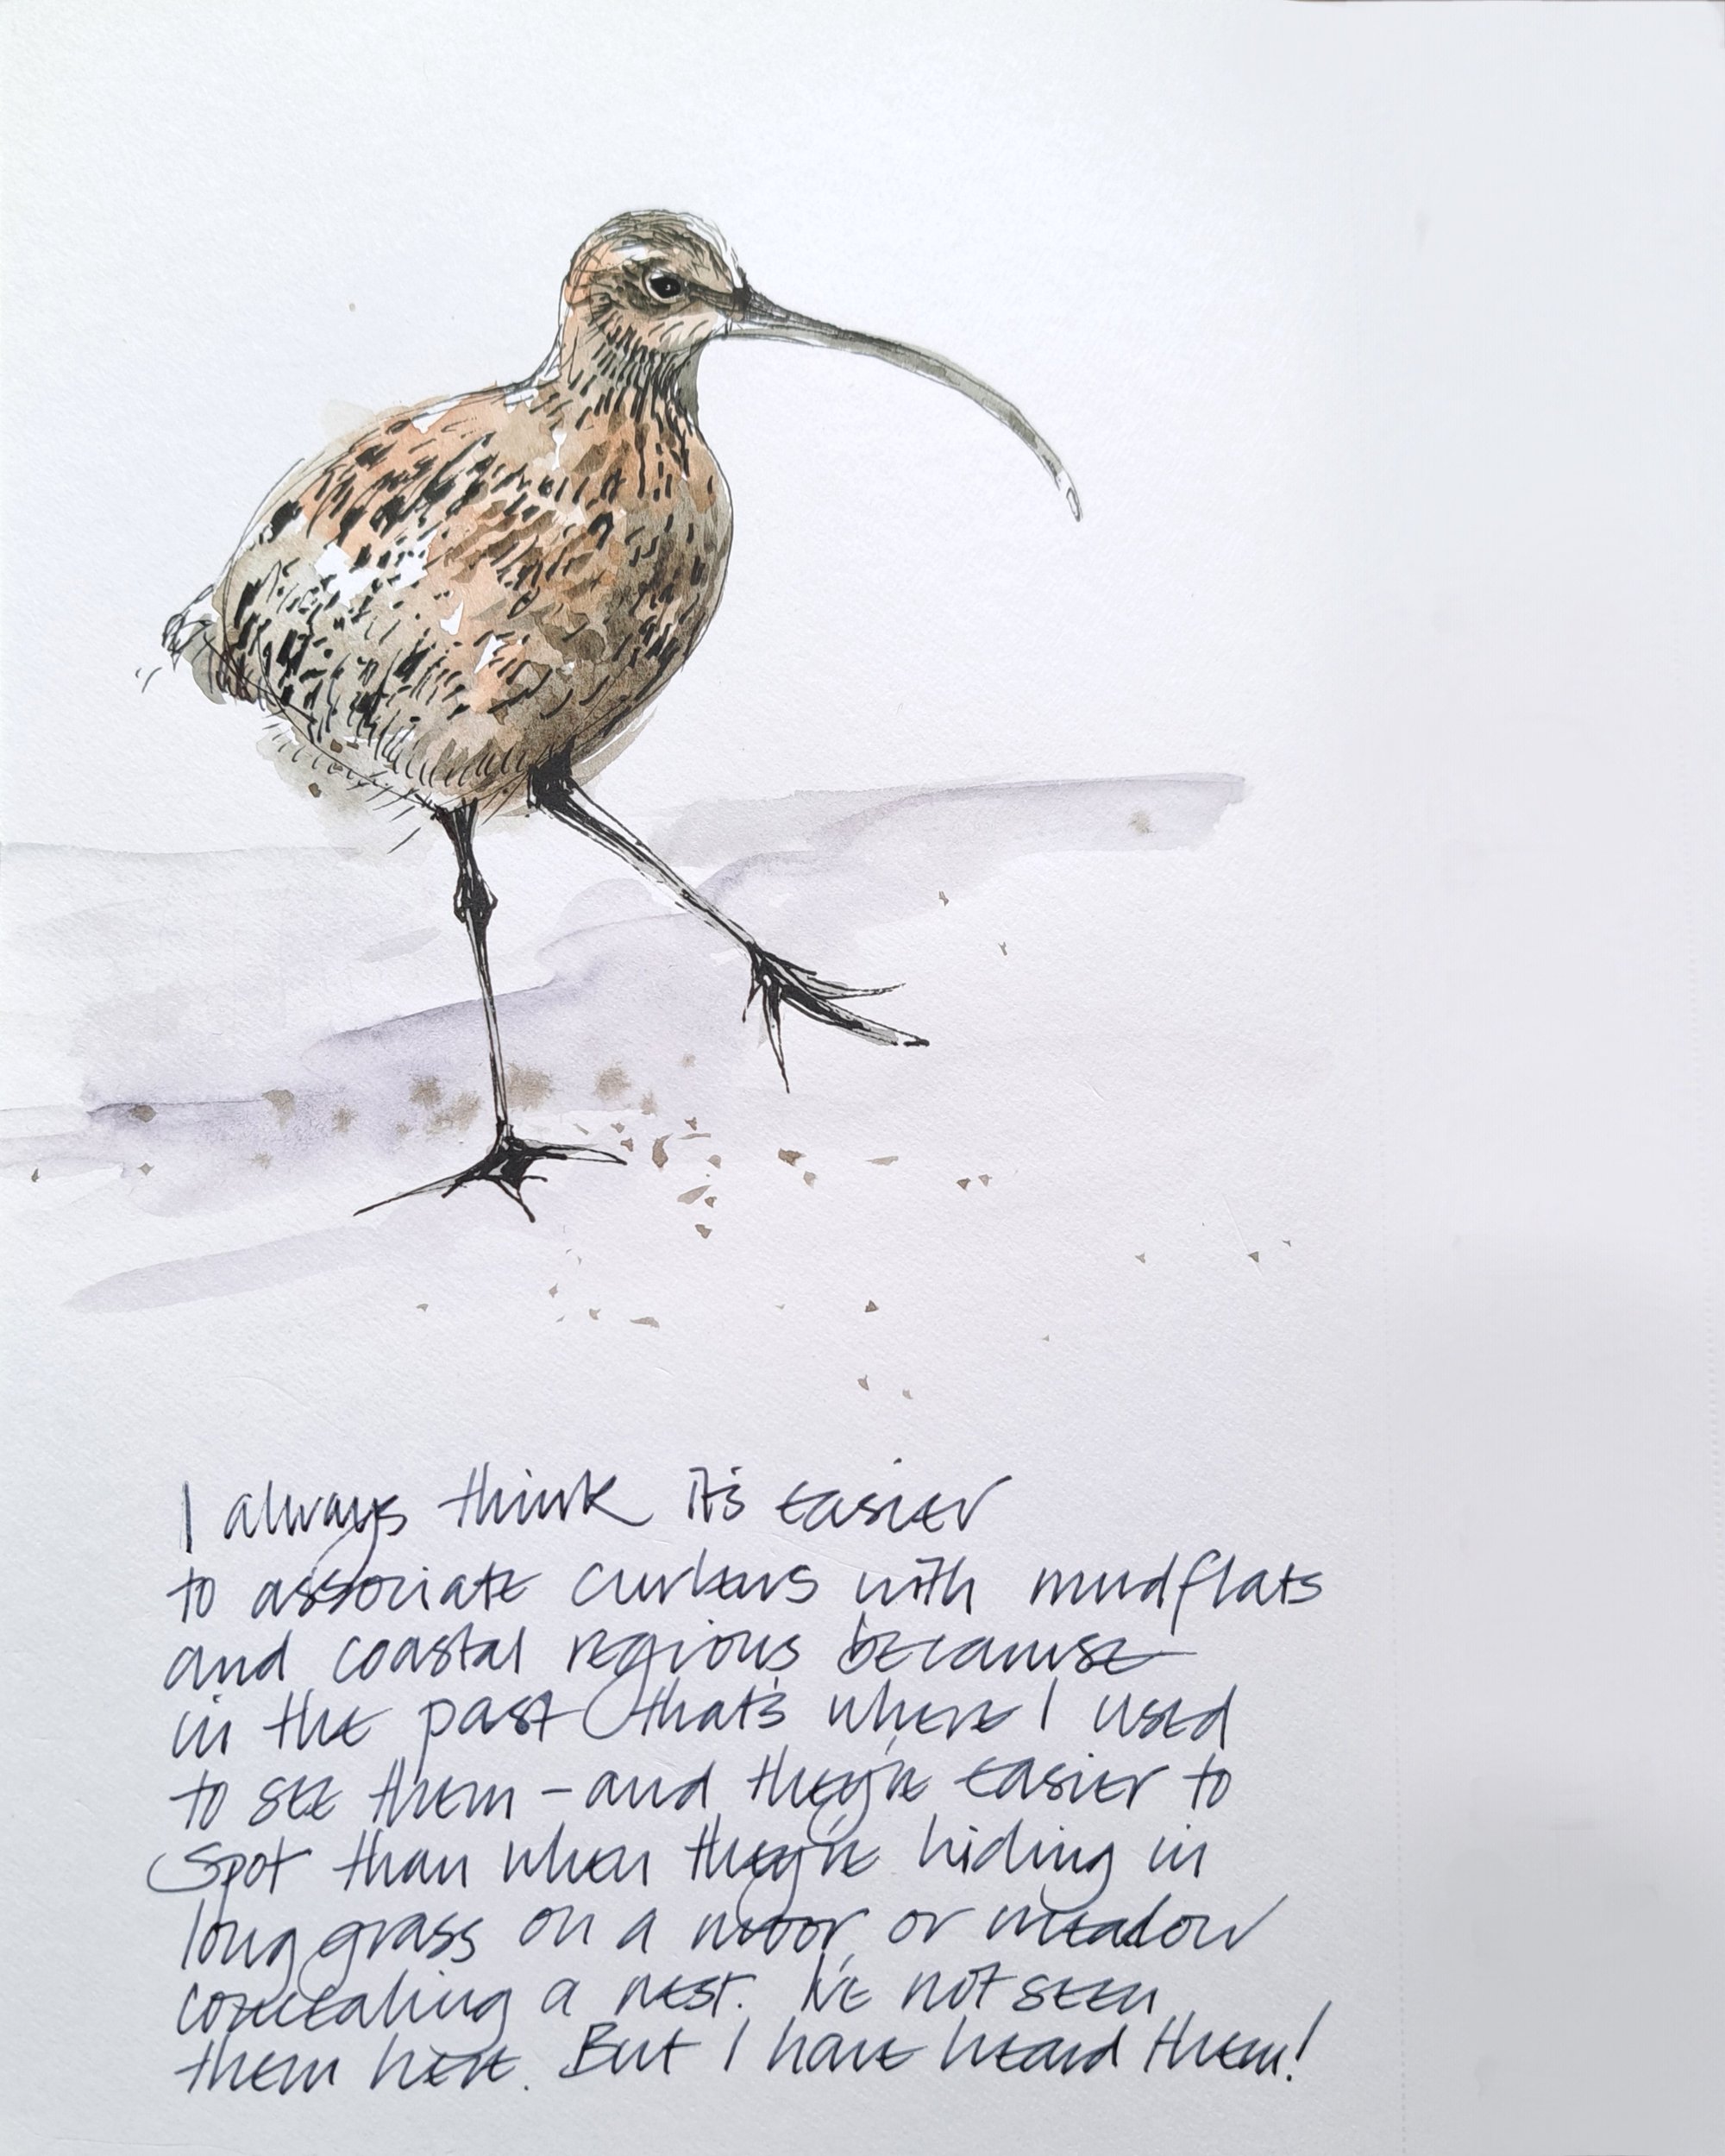 I always think it's easier
to associate curlews with mudflats
and coastal regions because
in the past that's where I used
to see them – and they're easier to
spot than when they're hiding in
long grass on a moor, or meadow
concealing a nest. I've not seen
them here. But I have heard them!